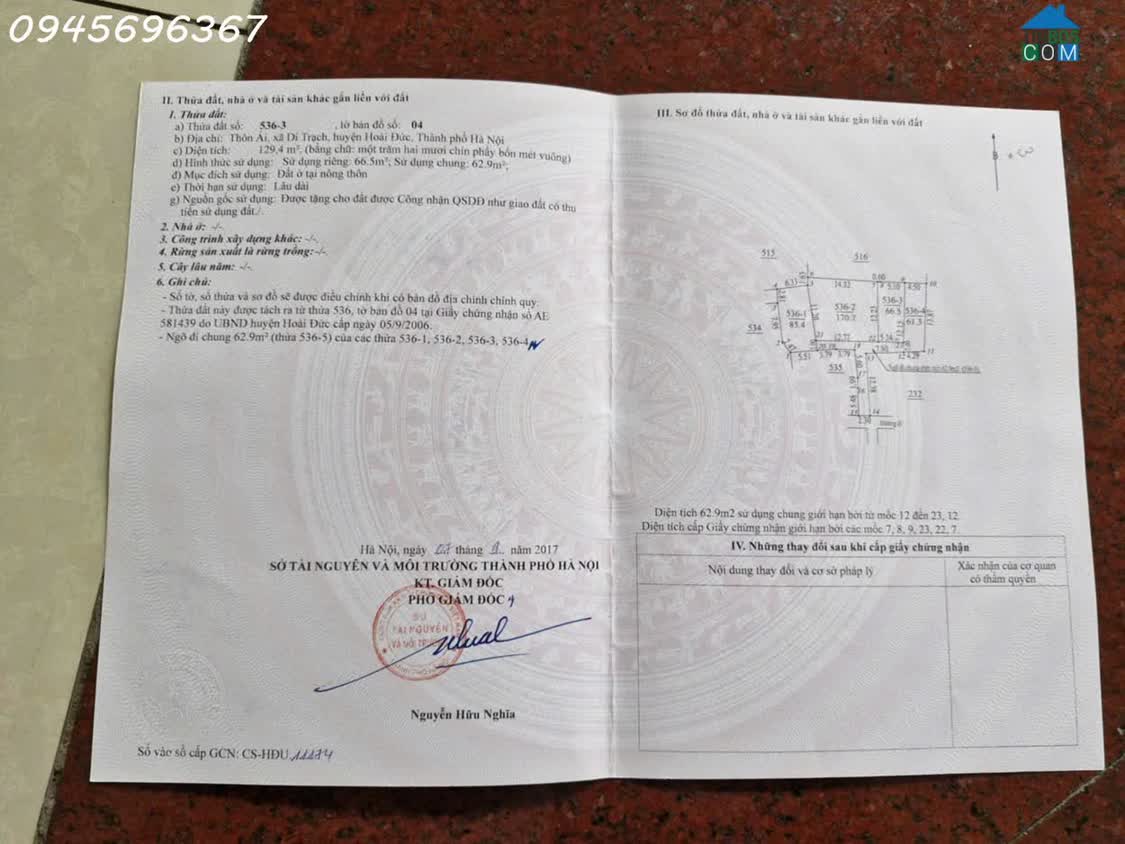 0945696367
BDS
COM
II. Thửa đất, nhà ở và tài sản khác gắn liền với đất
1. Thửa đất:
a) Thửa đất số: 536-3 , tờ bản đồ số: 04
b) Địa chỉ: Thôn Ải, xã Di Trạch, huyện Hoài Đức, Thành phố Hà Nội
c) Diện tích: 129,4 m², (bằng chữ: một trăm hai mươi chín phẩy bốn mét vuông)
d) Hình thức sử dụng: Sử dụng riêng: 66.5m²; Sử dụng chung: 62.9m²;
đ) Mục đích sử dụng: Đất ở tại nông thôn
e) Thời hạn sử dụng: Lâu dài
g) Nguồn gốc sử dụng: Được tặng cho đất được Công nhận QSDĐ như giao đất có thu
tiền sử dụng đất./.
2. Nhà ở: -/-
3. Công trình xây dựng khác: -/-.
4. Rừng sản xuất là rừng trồng:-/-.
5. Cây lâu năm: -/-.
6. Ghi chú:
- Số tờ, số thửa và sơ đồ sẽ được điều chỉnh khi có bản đồ địa chính chính quy.
- Thửa đất này được tách ra từ thửa 536, tờ bản đồ 04 tại Giấy chứng nhận số AE
581439 do UBND huyện Hoài Đức cấp ngày 05/9/2006.
- Ngõ đi chung 62.9m² (thửa 536-5) của các thửa 536-1, 536-2, 536-3, 536-4
Hà Nội, ngày tháng năm 2017
SỞ TÀI NGUYÊN VÀ MÔI TRƯỜNG THÀNH PHỐ HÀ NỘI
KT. GIÁM ĐỐC
PHÓ GIÁM ĐỐC
SỞ
TÀI NGUYÊN
VÀ MÔI TRƯỜNG
Nguyễn Hữu Nghĩa
Số vào sổ cấp GCN: CS-HĐU 11174
III. Sơ đồ thửa đất, nhà ở và tài sản khác gắn liền với đất
B
515
516
8.60
6.33
14.32
5.10
4.50
10
536-3
536-2
66.5
536-4
536-1
170.7
61.5
85.4
534
12.77
5.51
3.79
3.79
4.29
11
535
232
2.30
14
Diện tích 62.9m2 sử dụng chung giới hạn bởi từ mốc 12 đến 23, 12.
Diện tích cấp Giấy chứng nhận giới hạn bởi các mốc 7, 8, 9, 23, 22, 7.
IV. Những thay đổi sau khi cấp giấy chứng nhận
Nội dung thay đổi và cơ sở pháp lý
Xác nhận của cơ quan
có thẩm quyền